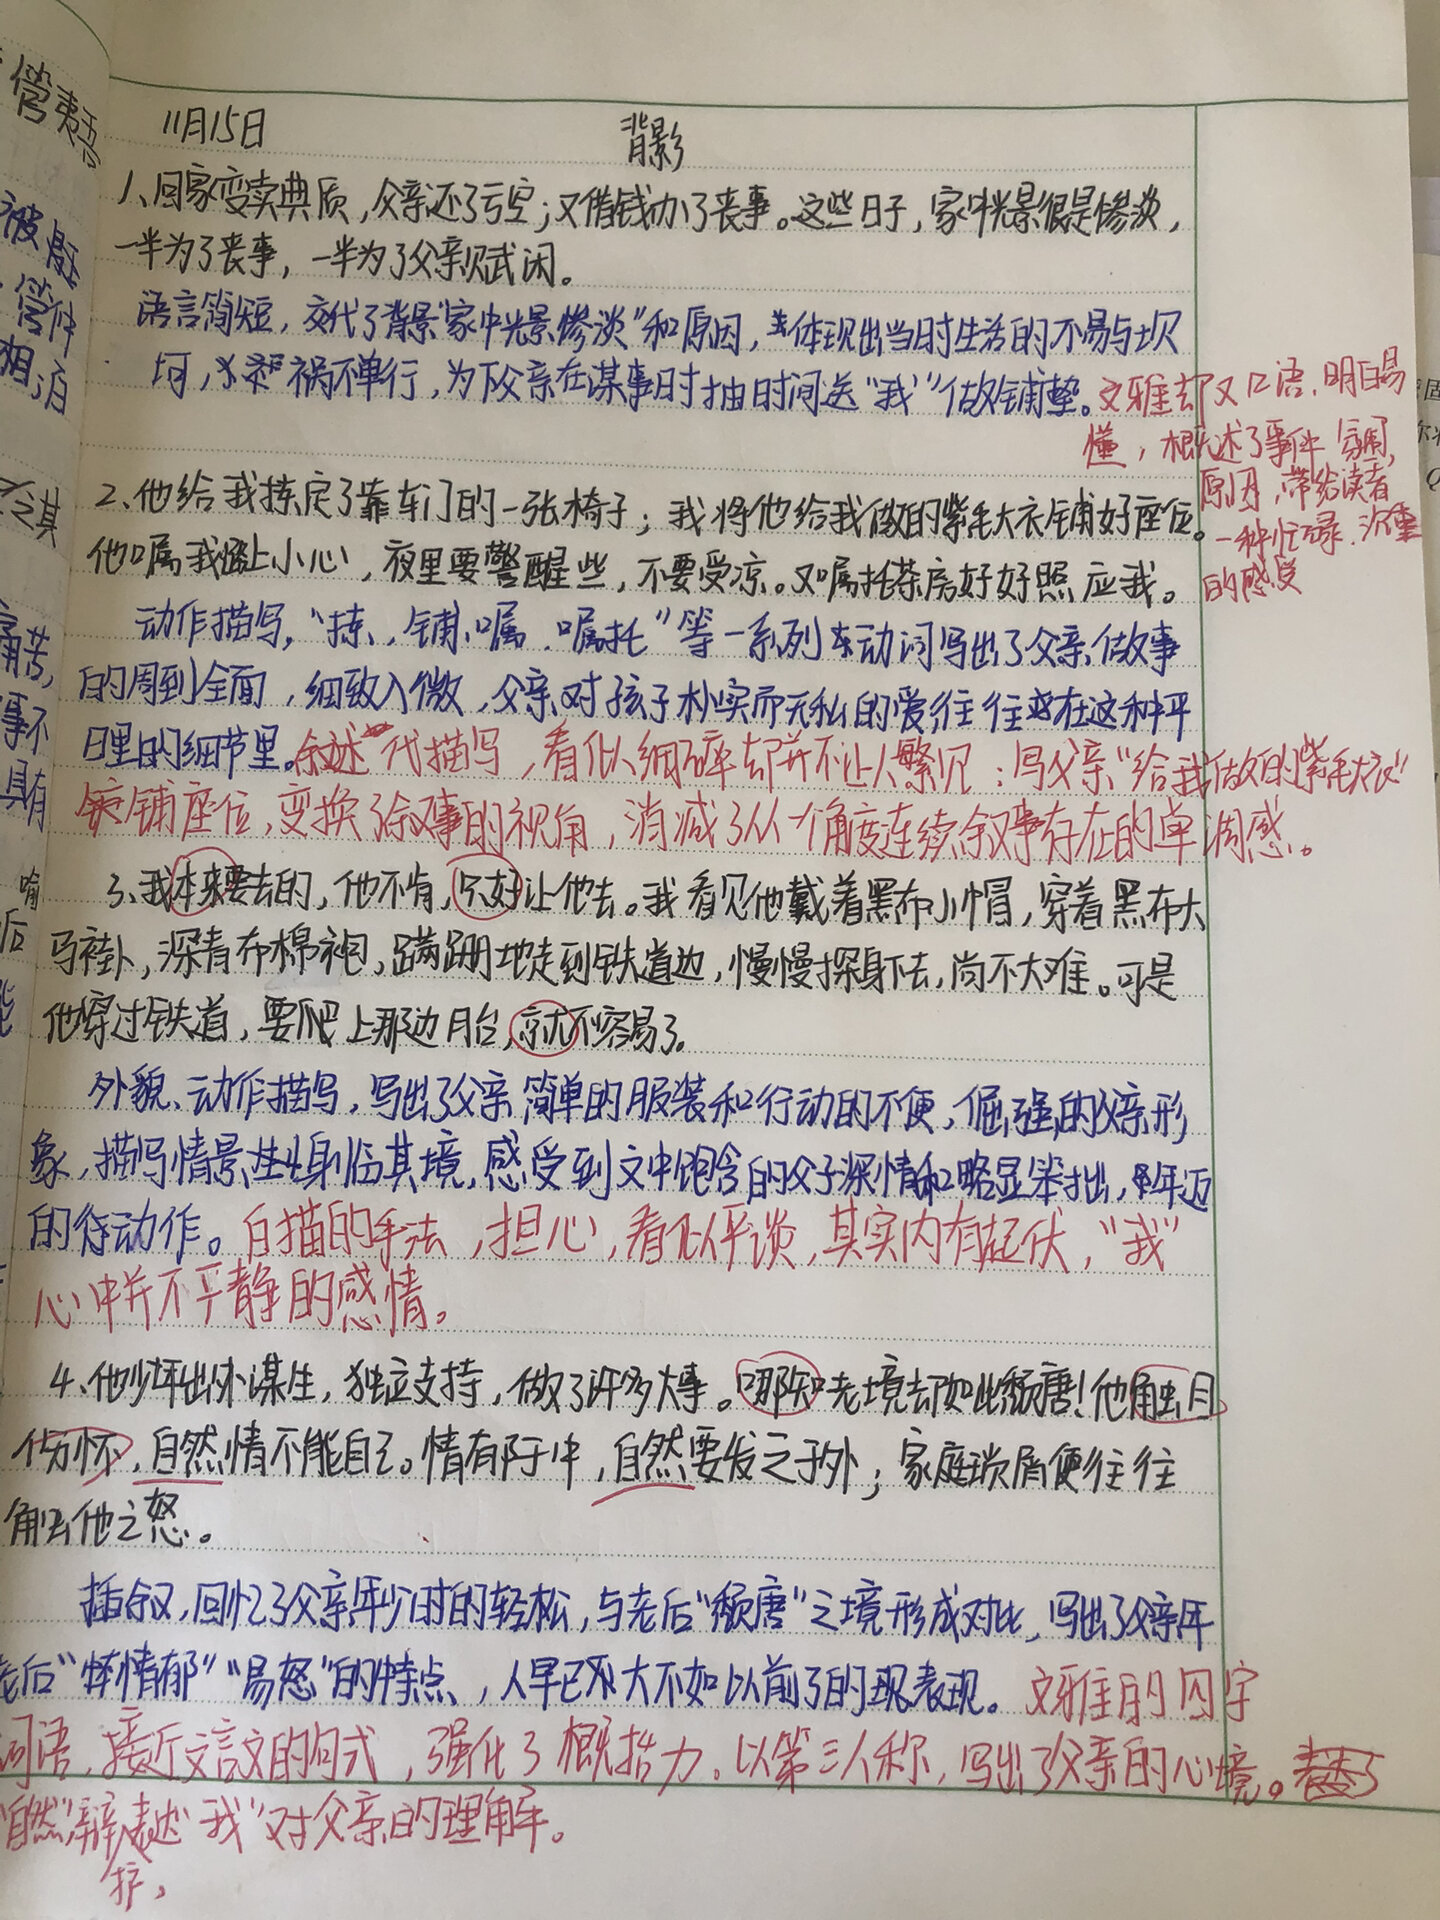 11月15日 背影
1、回家变卖典质，父亲还了亏空；又借钱办了丧事。这些日子，家中光景很是惨淡，
一半为了丧事，一半为了父亲赋闲。
语言简短，交代了背景“家中光景惨淡”和原因，体现出当时生活的不易与坎
坷，祸不单行，为下父亲在谋事时抽时间送“我”做铺垫。文雅却又口语，明白易
懂，概述了事件
原因，带给读者
一种忙碌、沉重
的感受
2、他给我拣定了靠车门的一张椅子；我将他给我做的紫毛大衣铺好座位。
他嘱我路上小心，夜里要警醒些，不要受凉。又嘱托茶房好好照应我。
动作描写，“拣、铺、嘱、嘱托”等一系列动词写出了父亲做事
的周到全面，细致入微，父亲对孩子朴实而无私的爱往往在这种平
日里的细节里。叙述代描写，看似细碎却并不让人繁见：写父亲“给我做的紫毛大衣”
铺座位，变换了叙事的视角，消减了从一个角度连续叙事存在的单调感。
3、我本来要去的，他不肯，只好让他去。我看见他戴着黑布小帽，穿着黑布大
马褂，深青布棉袍，蹒跚地走到铁道边，慢慢探身下去，尚不大难。可是
他穿过铁道，要爬上那边月台，就不容易了。
外貌、动作描写，写出了父亲简单的服装和行动的不便，倔强的父亲形
象，描写情景生身临其境，感受到文中饱含的父子深情和略显笨拙，年迈
的待动作。白描的手法，担心，看似平谈，其实内有起伏，“我”
心中并不平静的感情。
4、他少年出外谋生，独立支持，做了许多大事。哪知老境却如此颓唐！他触目
伤怀，自然情不能自已。情有于中，自然要发之于外；家庭琐屑便往往
触他之怒。
插叙，回忆了父亲年少时的轻松，与老后“颓唐”之境形成对比，写出了父亲年
老后“情郁”“易怒”的特点，人早已大不如以前了的现表现。文雅的四字
词语，接近文言文的句式，强化了概括力。以第三人称，写出了父亲的心境。
“自然”，辩护，表达“我”对父亲的理解。